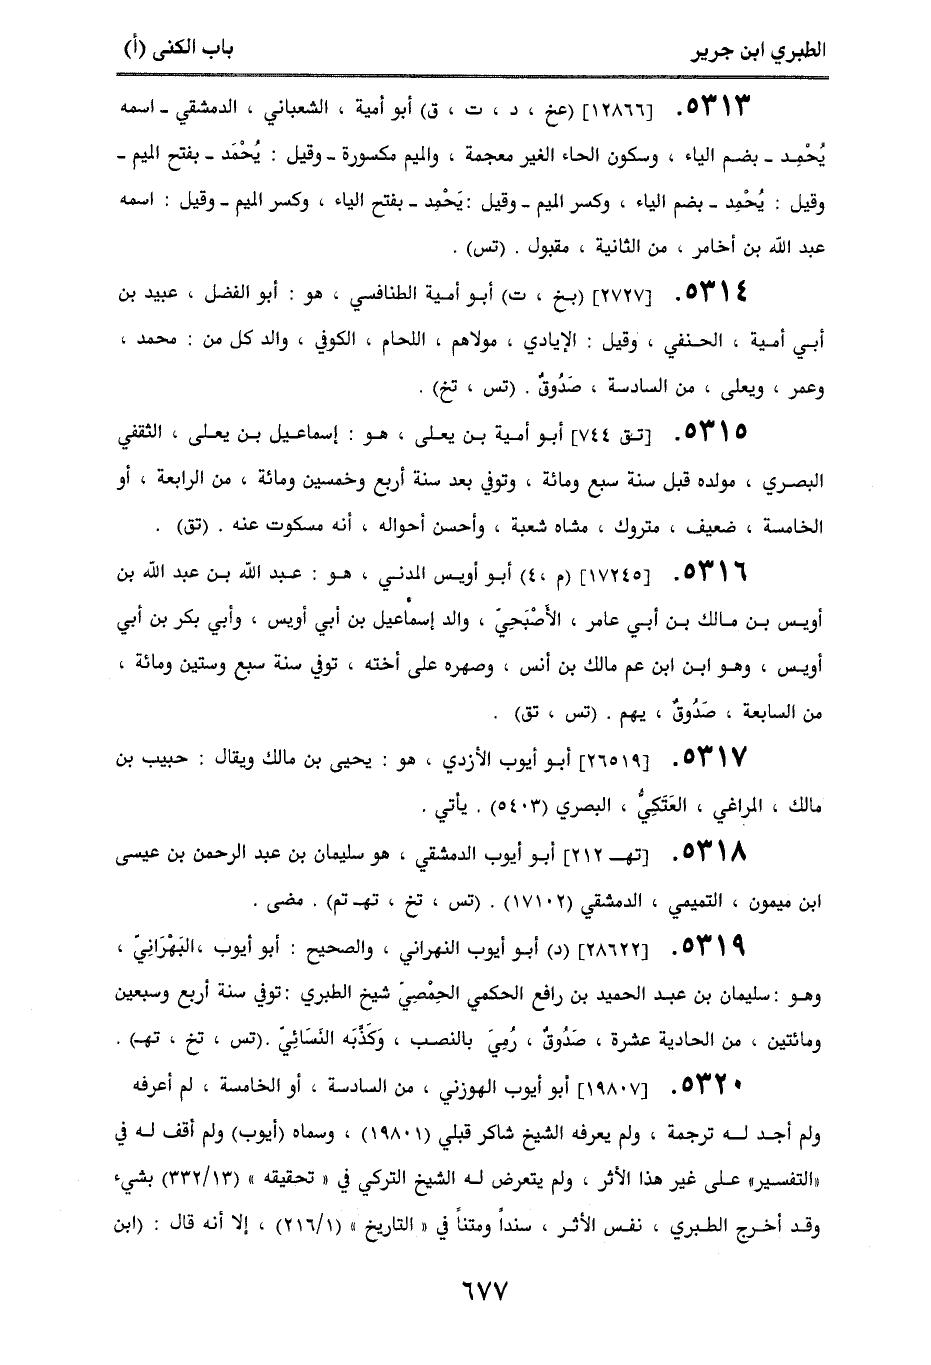 الطبري ابن جرير
باب الكنى (أ)
٥٣١٣. [١٢٨٦٦] (عخ ، د ، ت ، ق) أبو أمية ، الشعباني ، الدمشقي ـ اسمه
يُحْمِد ـ بضم الياء ، وسكون الحاء الغير معجمة ، والميم مكسورة ـ وقيل : يُحْمَد ـ بفتح الميم ـ
وقيل : يُحْمِد ـ بضم الياء ، وكسر الميم ـ وقيل : يَحْمِد ـ بفتح الياء ، وكسر الميم ـ وقيل : اسمه
عبد الله بن أخامر ، من الثانية ، مقبول . (تس) .
٥٣١٤. [٢٧٢٧] (بخ ، ت) أبو أمية الطنافسي ، هو : أبو الفضل ، عبيد بن
أبي أمية ، الحنفي ، وقيل : الإيادي ، مولاهم ، اللحام ، الكوفي ، والد كل من : محمد ،
وعمر ، ويعلى ، من السادسة ، صَدُوقٌ . (تس ، تخ) .
٥٣١٥. [تق ٧٤٤] أبو أمية بن يعلى ، هو : إسماعيل بن يعلى ، الثقفي
البصري ، مولده قبل سنة سبع ومائة ، وتوفي بعد سنة أربع وخمسين ومائة ، من الرابعة ، أو
الخامسة ، ضعيف ، متروك ، مشاه شعبة ، وأحسن أحواله ، أنه مسكوت عنه . (تق) .
٥٣١٦. [١٧٢٤٥] (م ،٤) أبو أويس المدني ، هو : عبد الله بن عبد الله بن
أويس بن مالك بن أبي عامر ، الأَصْبَحِيّ ، والد إسماعيل بن أبي أويس ، وأبي بكر بن أبي
أويس ، وهو ابن ابن عم مالك بن أنس ، وصهره على أخته ، توفي سنة سبع وستين ومائة ،
من السابعة ، صَدُوقٌ ، يهم . (تس ، تق) .
٥٣١٧. [٢٦٥١٩] أبو أيوب الأزدي ، هو : يحيى بن مالك ويقال : حبيب بن
مالك ، المراغي ، العَتَكِيُّ ، البصري (٥٤٠٣) . يأتي .
٥٣١٨. [تهـ ٢١٢] أبو أيوب الدمشقي ، هو سليمان بن عبد الرحمن بن عيسى
ابن ميمون ، التميمي ، الدمشقي (١٧١٠٢) . (تس ، تخ ، تهـ تم) . مضى .
٥٣١٩. [٢٨٦٢٢] (د) أبو أيوب النهراني ، والصحيح : أبو أيوب ،البَهْرَانِيّ ،
وهو :سليمان بن عبد الحميد بن رافع الحكمي الحِمْصِيّ شيخ الطبري :توفي سنة أربع وسبعين
ومائتين ، من الحادية عشرة ، صَدُوقٌ ، رُمِيَ بالنصب ، وَكَذَّبَه النَسَائِيّ .(تس ، تخ ، تهـ) .
٥٣٢٠. [١٩٨٠٧] أبو أيوب الهوزني ، من السادسة ، أو الخامسة ، لم أعرفه
ولم أجد له ترجمة ، ولم يعرفه الشيخ شاكر قبلي (١٩٨٠١) ، وسماه (أيوب) ولم أقف له في
«التفسير» على غير هذا الأثر ، ولم يتعرض له الشيخ التركي في « تحقيقه » (٣٣٢/١٣) بشيء
وقد أخرج الطبري ، نفس الأثر ، سنداً ومتناً في « التاريخ » (٢١٦/١) ، إلا أنه قال : (ابن
٦٧٧